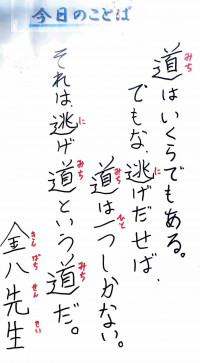 今日のことば
道はいくらでもある。
みち
でもな、逃げだせば、
に
道は一つしかない。
みち ひと
それは、逃げ道という道だ。
に みち みち
金八先生
きん ぱち せん せい